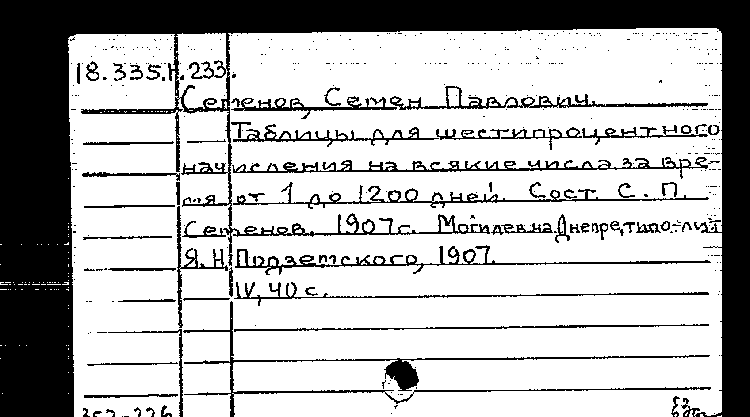 18.335.Н.233.
Семенов, Семен Павлович.
Таблицы для шестипроцентного
начисления на всякие числа за вре-
мя от 1 до 1200 дней. Сост. С. П.
Семенов. 1907 г. Могилев на Днепре, типо-лит
Я. Н. Подземского, 1907.
IV, 40 с.